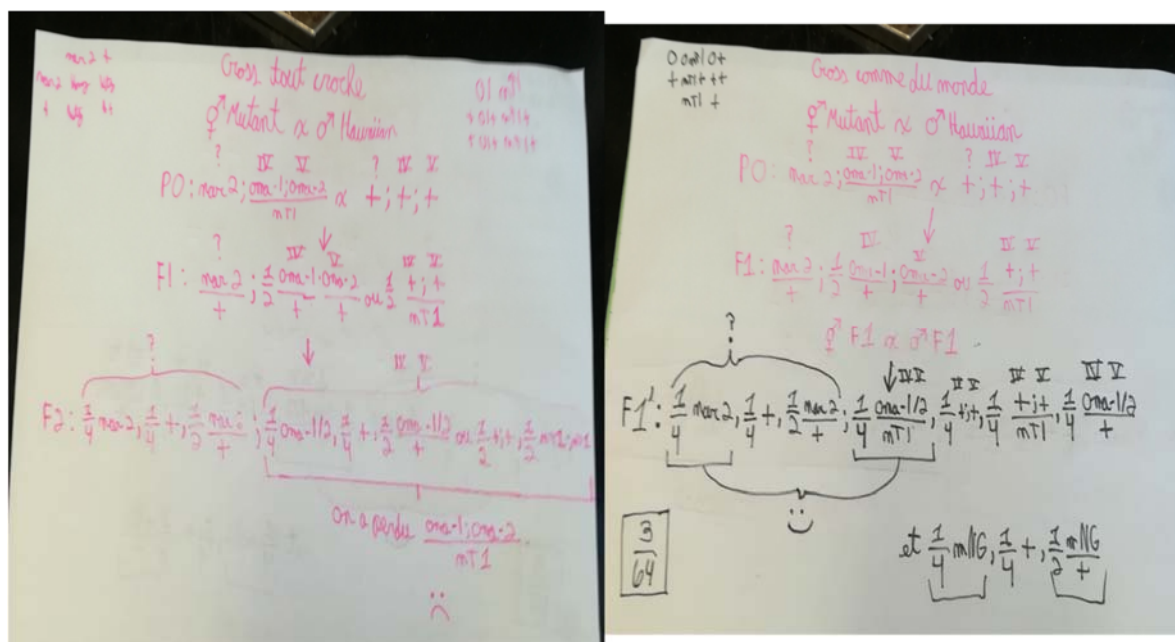 Cross tout croche
⚥ Mutant x ♂ Hawaiian
? IV V ? IV V
P0: mar2; oma-1; oma-2 / mT1 x +; +; +
↓
? IV V IV V
F1: mar2 / +; 1/2 oma-1 / + oma-2 / + ou 1/2 +;+ / mT1
↓
? IV V
F2: mar2, 1/4 +, 1/2 / +; 1/4 oma-1/2, 1/4 +, 1/2 oma-1/2 / + ou 1/2 +;+, 1/2 mT1;mT1
on a perdu oma-1; oma-2 / mT1
:(
Cross comme du monde
⚥ Mutant x ♂ Hawaiian
? IV V ? IV V
P0: mar2; oma-1; oma-2 / mT1 x +; +; +
↓
? IV V IV V
F1: mar2 / +; 1/2 oma-1 / +; oma-2 / + ou 1/2 +;+ / mT1
⚥ F1 x ♂ F1
? ↓ IV V IV V IV V IV V
F1': 1/4 mar2, 1/4 +, 1/2 mar2 / +; 1/4 oma-1/2 / mT1, 1/4 +;+, 1/4 +;+ / mT1, 1/4 oma-1/2 / +
:)
3/64
et 1/4 mNG, 1/4 +, 1/2 mNG / +